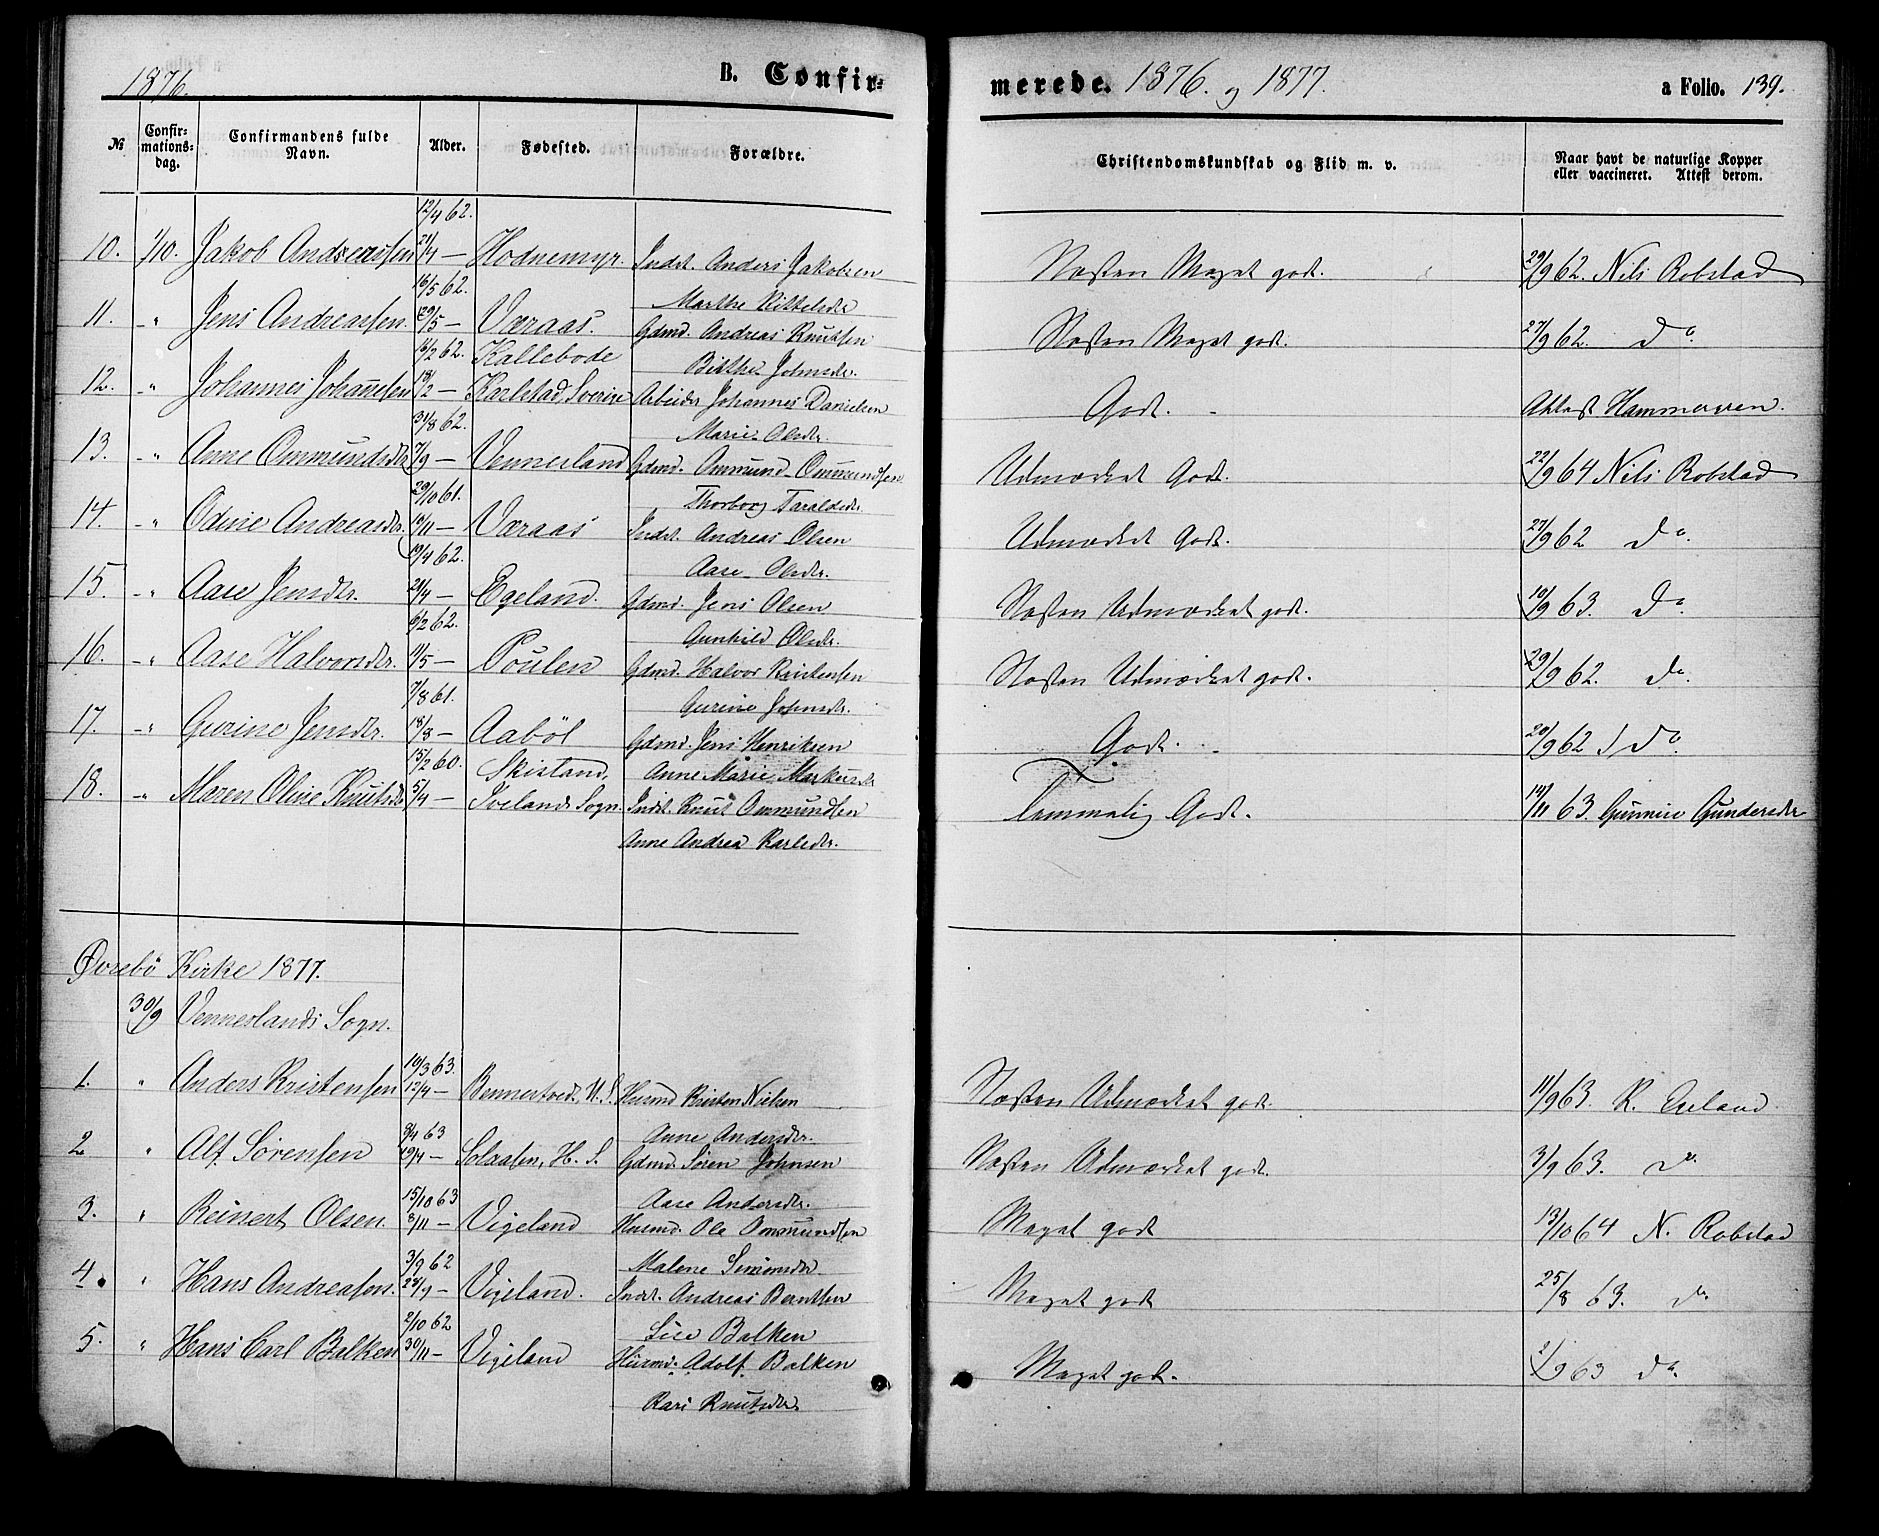 1876.
B. Confir=
№
Confir=
mations=
dag.
Confirmandens fulde
Navn.
Alder.
Fødested.
Forældre.
12/4 62.
10. 1/10. Jakob Andreassen 21/4 — Hodnemyr. Indst. Anders Jakobsen
16/5 62. Marthe Kittelsdr
11. -„ Jens Andreassen. 29/5 — Væraas. Gdmd. Andreas Knutsen
16/2 62. Kallebode Birthe Johnsdr.
12. „ Johannes Johansen 18/2 — Karlstad, Sverige Arbeider Johannes Danielsen
31/8 62. Marie Olsdr.
13. -„ Anne Ommundsdr 7/9 — Vennesland Gdmd. Ommund Ommundsen
29/10 61. Thorborg Taraldsdr
14. -„ Odine Andreasdr. 10/11 — Væraas Indst. Andreas Olsen
19/4 62. Aase Olsdr.
15. -„ Aase Jensdr. 21/4 — Egeland. Gdmd. Jens Olsen
6/2 62. Gunhild Olsdr.
16. -„ Aase Halvorsdr. 11/5 — Poulen Gdmd. Halvor Kristensen
7/8 61. Gurine Johnsdr.
17. -„ Gurine Jensdr. 18/8 — Aabøl Gdmd. Jens Henriksen
15/2 60. Skisland, Anne Marie Markusdr
18. -„ Maren Oline Knutsdr 5/4 — Ivelands Sogn. Indst. Knut Ommundsen
Anne Andrea Karlsdr.
Øvrebö Kirke 1877.
30/9 Venneslands Sogn.
14/3 63.
1. „ Anders Kristensen 12/4 — Bennestvedt, H. S. Husmd Kristen Nielsen
3/4 63 Anne Andersdr.
2 „ Alf Sörensen 19/4 — Solaasen, H. S. Gdmd. Sören Johnsen
15/10 63 Aase Andersdr.
3. „ Reinert Olsen. 3/11 — Vigeland Husmd. Ole Ommundsen
3/9 62 Malene Simonsdr
4. „ Hans Andreasen. 28/9 — Vigeland. Indst. Andreas Berntsen
2/10 62 Sire Balken
5. „ Hans Carl Balken 30/11 — Vigeland Husmd. Adolf Balken
Kari Knutsdr.
merede. 1876. og 1877.
a Folio. 139.
Christendomskundskab og Flid m. v.
Naar havt de naturlige Kopper
eller vaccineret. Attest derom.
Næsten Meget godt. 29/9 62. Nils Robstad
Næsten Meget godt. 27/9 62. do.
Godt. Attest Hammergren.
Udmærket Godt. 22/9 64 Nils Robstad
Udmærket Godt. 27/9 62 do.
Næsten Udmærket godt. 10/9 63. do.
Næsten Udmærket godt. 29/9 62. do.
Godt. 20/9 62 do.
Temmelig Godt. 14/11 63. Gunnine Gundersdr
Næsten Udmærket godt. 11/9 63. K. Eieland.
Næsten Udmærket godt. 3/9 63. do.
Meget godt 13/10 64 N. Robstad
Meget godt 25/8 63. do.
Meget godt. 2/9 63 do.